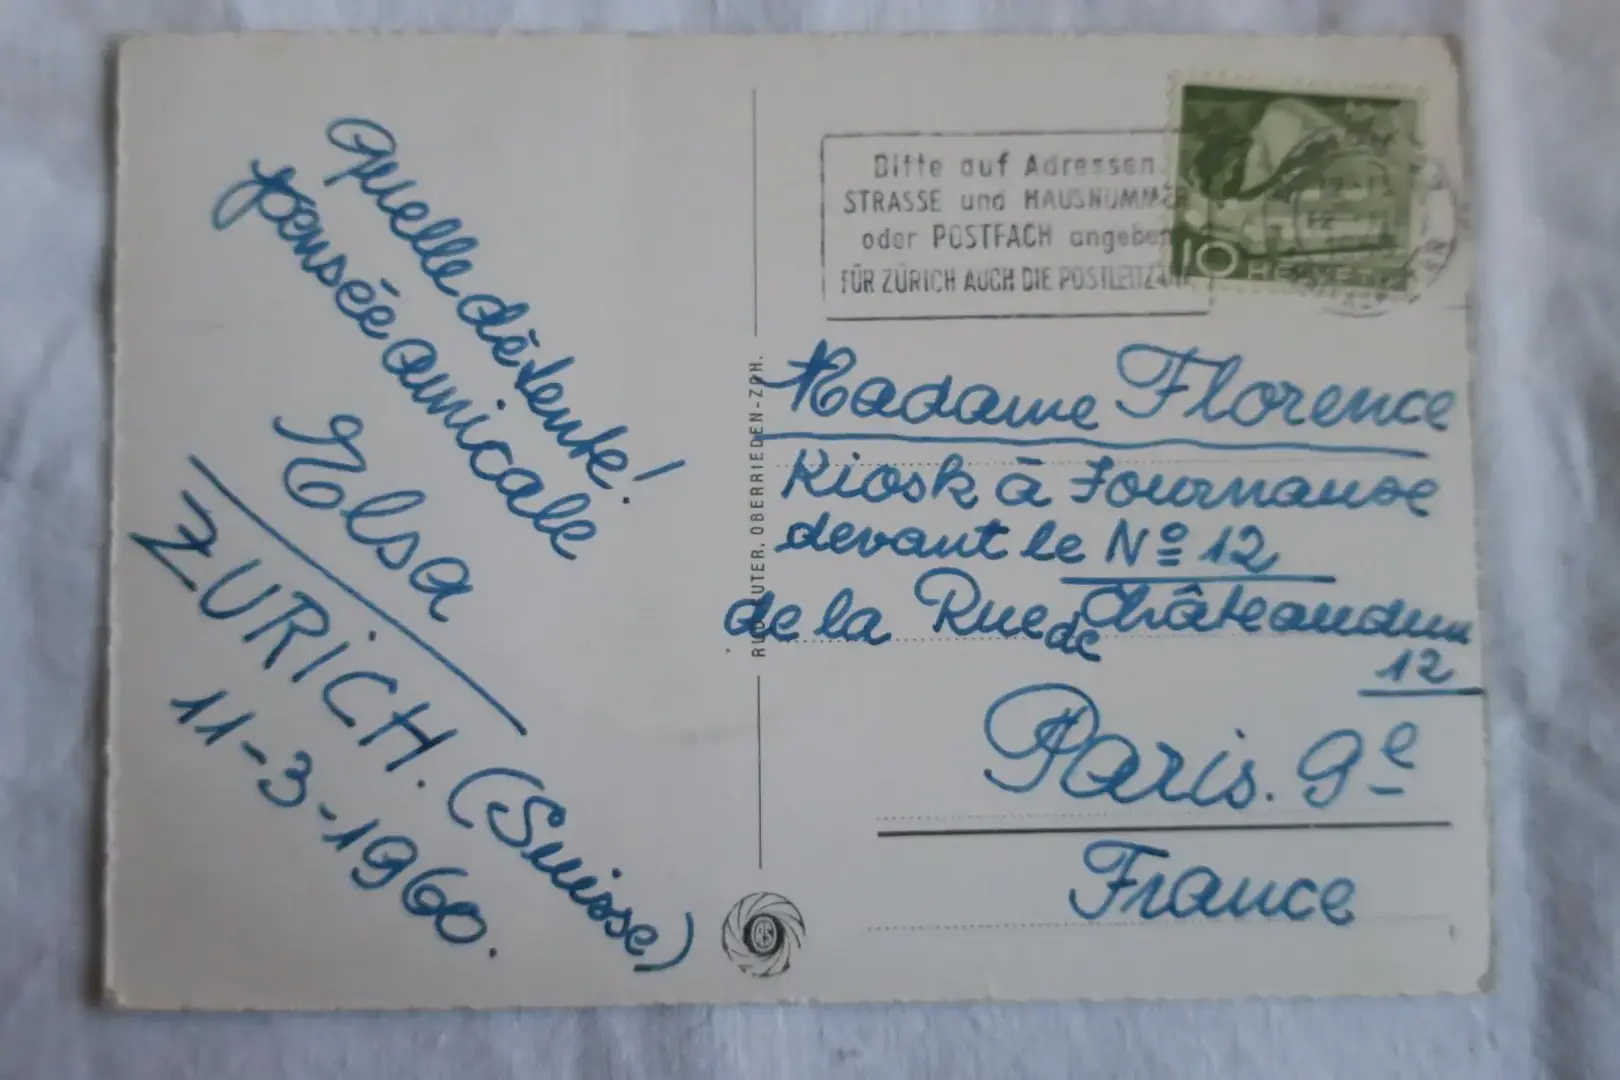 Quelle détente!
pensée amicale
Elsa
ZURICH. (Suisse)
11-3-1960.
Bitte auf Adressen
STRASSE und HAUSNUMMER
oder POSTFACH angeben
FÜR ZÜRICH AUCH DIE POSTLEITZAHL
10 HELVETIA
Madame Florence
Kiosk à Journause
devant le Nº 12
de la Rue de Châteaudun
12
Paris. 9e
France
OBERRIEDEN-ZCH.